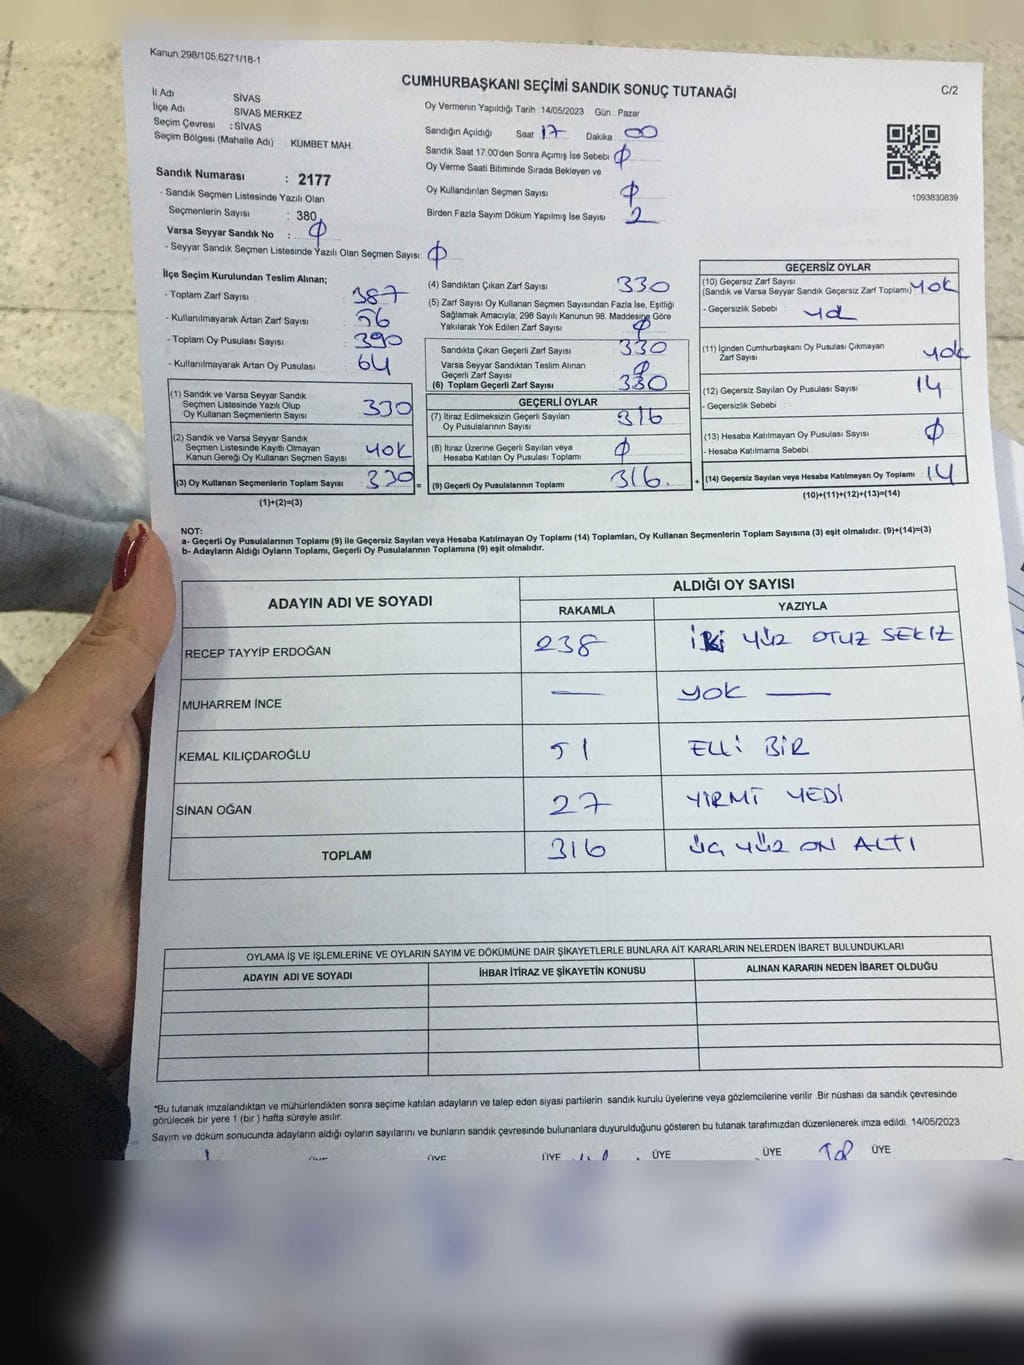 Kanun;298/105,6271/18-1
CUMHURBAŞKANI SEÇİMİ SANDIK SONUÇ TUTANAĞI
C/2
İl Adı SİVAS
İlçe Adı SİVAS MERKEZ
Seçim Çevresi : SİVAS
Seçim Bölgesi (Mahalle Adı) : KÜMBET MAH.
Sandık Numarası : 2177
- Sandık Seçmen Listesinde Yazılı Olan
Seçmenlerin Sayısı : 380
Varsa Seyyar Sandık No : Φ
- Seyyar Sandık Seçmen Listesinde Yazılı Olan Seçmen Sayısı: Φ
Oy Vermenin Yapıldığı Tarih : 14/05/2023 Gün : Pazar
Sandığın Açıldığı Saat 17 Dakika : 00
Sandık Saat 17:00'den Sonra Açımış İse Sebebi : Φ
Oy Verme Saati Bitiminde Sırada Bekleyen ve
Oy Kullandırılan Seçmen Sayısı Φ
Birden Fazla Sayım Döküm Yapılmış İse Sayısı 2
1093830839
İlçe Seçim Kurulundan Teslim Alınan;
- Toplam Zarf Sayısı : 387
- Kullanılmayarak Artan Zarf Sayısı : 56
- Toplam Oy Pusulası Sayısı : 390
- Kullanılmayarak Artan Oy Pusulası : 64
(1) Sandık ve Varsa Seyyar Sandık
Seçmen Listesinde Yazılı Olup
Oy Kullanan Seçmenlerin Sayısı : 330
(2) Sandık ve Varsa Seyyar Sandık
Seçmen Listesinde Kayıtlı Olmayan
Kanun Gereği Oy Kullanan Seçmen Sayısı : YOK
(3) Oy Kullanan Seçmenlerin Toplam Sayısı : 330 =
(1)+(2)=(3)
(4) Sandıktan Çıkan Zarf Sayısı : 330
(5) Zarf Sayısı Oy Kullanan Seçmen Sayısından Fazla İse, Eşitliği
Sağlamak Amacıyla, 298 Sayılı Kanunun 98. Maddesine Göre
Yakılarak Yok Edilen Zarf Sayısı : Φ
Sandıkta Çıkan Geçerli Zarf Sayısı : 330
Varsa Seyyar Sandıktan Teslim Alınan
Geçerli Zarf Sayısı : Φ
(6) Toplam Geçerli Zarf Sayısı : 330
GEÇERLİ OYLAR
(7) İtiraz Edilmeksizin Geçerli Sayılan
Oy Pusulalarının Sayısı : 316
(8) İtiraz Üzerine Geçerli Sayılan veya
Hesaba Katılan Oy Pusulası Toplamı : Φ
(9) Geçerli Oy Pusulalarının Toplamı : 316. +
GEÇERSİZ OYLAR
(10) Geçersiz Zarf Sayısı
(Sandık ve Varsa Seyyar Sandık Geçersiz Zarf Toplamı) YOK
- Geçersizlik Sebebi :
(11) İçinden Cumhurbaşkanı Oy Pusulası Çıkmayan
Zarf Sayısı : yok
(12) Geçersiz Sayılan Oy Pusulası Sayısı : 14
- Geçersizlik Sebebi :
(13) Hesaba Katılmayan Oy Pusulası Sayısı : Φ
- Hesaba Katılmama Sebebi :
(14) Geçersiz Sayılan veya Hesaba Katılmayan Oy Toplamı : 14
(10)+(11)+(12)+(13)=(14)
NOT:
a- Geçerli Oy Pusulalarının Toplamı (9) ile Geçersiz Sayılan veya Hesaba Katılmayan Oy Toplamı (14) Toplamları, Oy Kullanan Seçmenlerin Toplam Sayısına (3) eşit olmalıdır. (9)+(14)=(3)
b- Adayların Aldığı Oyların Toplamı, Geçerli Oy Pusulalarının Toplamına (9) eşit olmalıdır.
ADAYIN ADI VE SOYADI ALDIĞI OY SAYISI
RAKAMLA YAZIYLA
RECEP TAYYİP ERDOĞAN 238 İKİ YÜZ OTUZ SEKİZ
MUHARREM İNCE — YOK —
KEMAL KILIÇDAROĞLU 51 ELLİ BİR
SİNAN OĞAN 27 YİRMİ YEDİ
TOPLAM 316 ÜÇ YÜZ ON ALTI
OYLAMA İŞ VE İŞLEMLERİNE VE OYLARIN SAYIM VE DÖKÜMÜNE DAİR ŞİKAYETLERLE BUNLARA AİT KARARLARIN NELERDEN İBARET BULUNDUKLARI
ADAYIN ADI VE SOYADI İHBAR İTİRAZ VE ŞİKAYETİN KONUSU ALINAN KARARIN NEDEN İBARET OLDUĞU
*Bu tutanak imzalandıktan ve mühürlendikten sonra seçime katılan adayların ve talep eden siyasi partilerin sandık kurulu üyelerine veya gözlemcilerine verilir .Bir nüshası da sandık çevresinde
görülecek bir yere 1 (bir ) hafta süreyle asılır.
Sayım ve döküm sonucunda adayların aldığı oyların sayılarını ve bunların sandık çevresinde bulunanlara duyurulduğunu gösteren bu tutanak tarafımızdan düzenlenerek imza edildi. 14/05/2023
ÜYE ÜYE ÜYE ÜYE ÜYE ÜYE